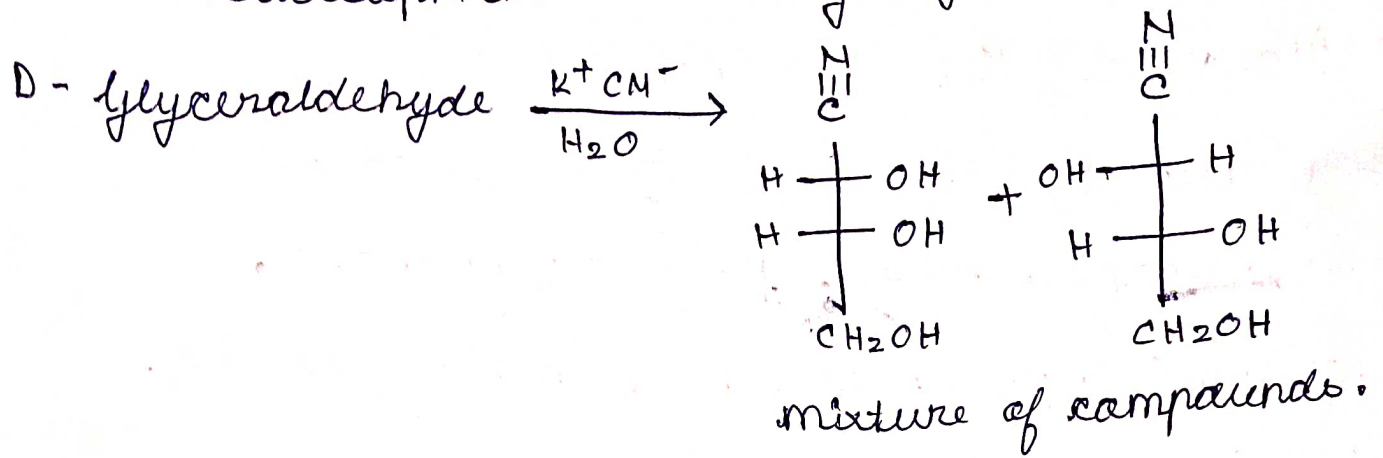 D - Glyceraldehyde K+ CN- H2O
N N
C C
H OH + OH H
H OH H OH
CH2OH CH2OH
mixture of compounds.